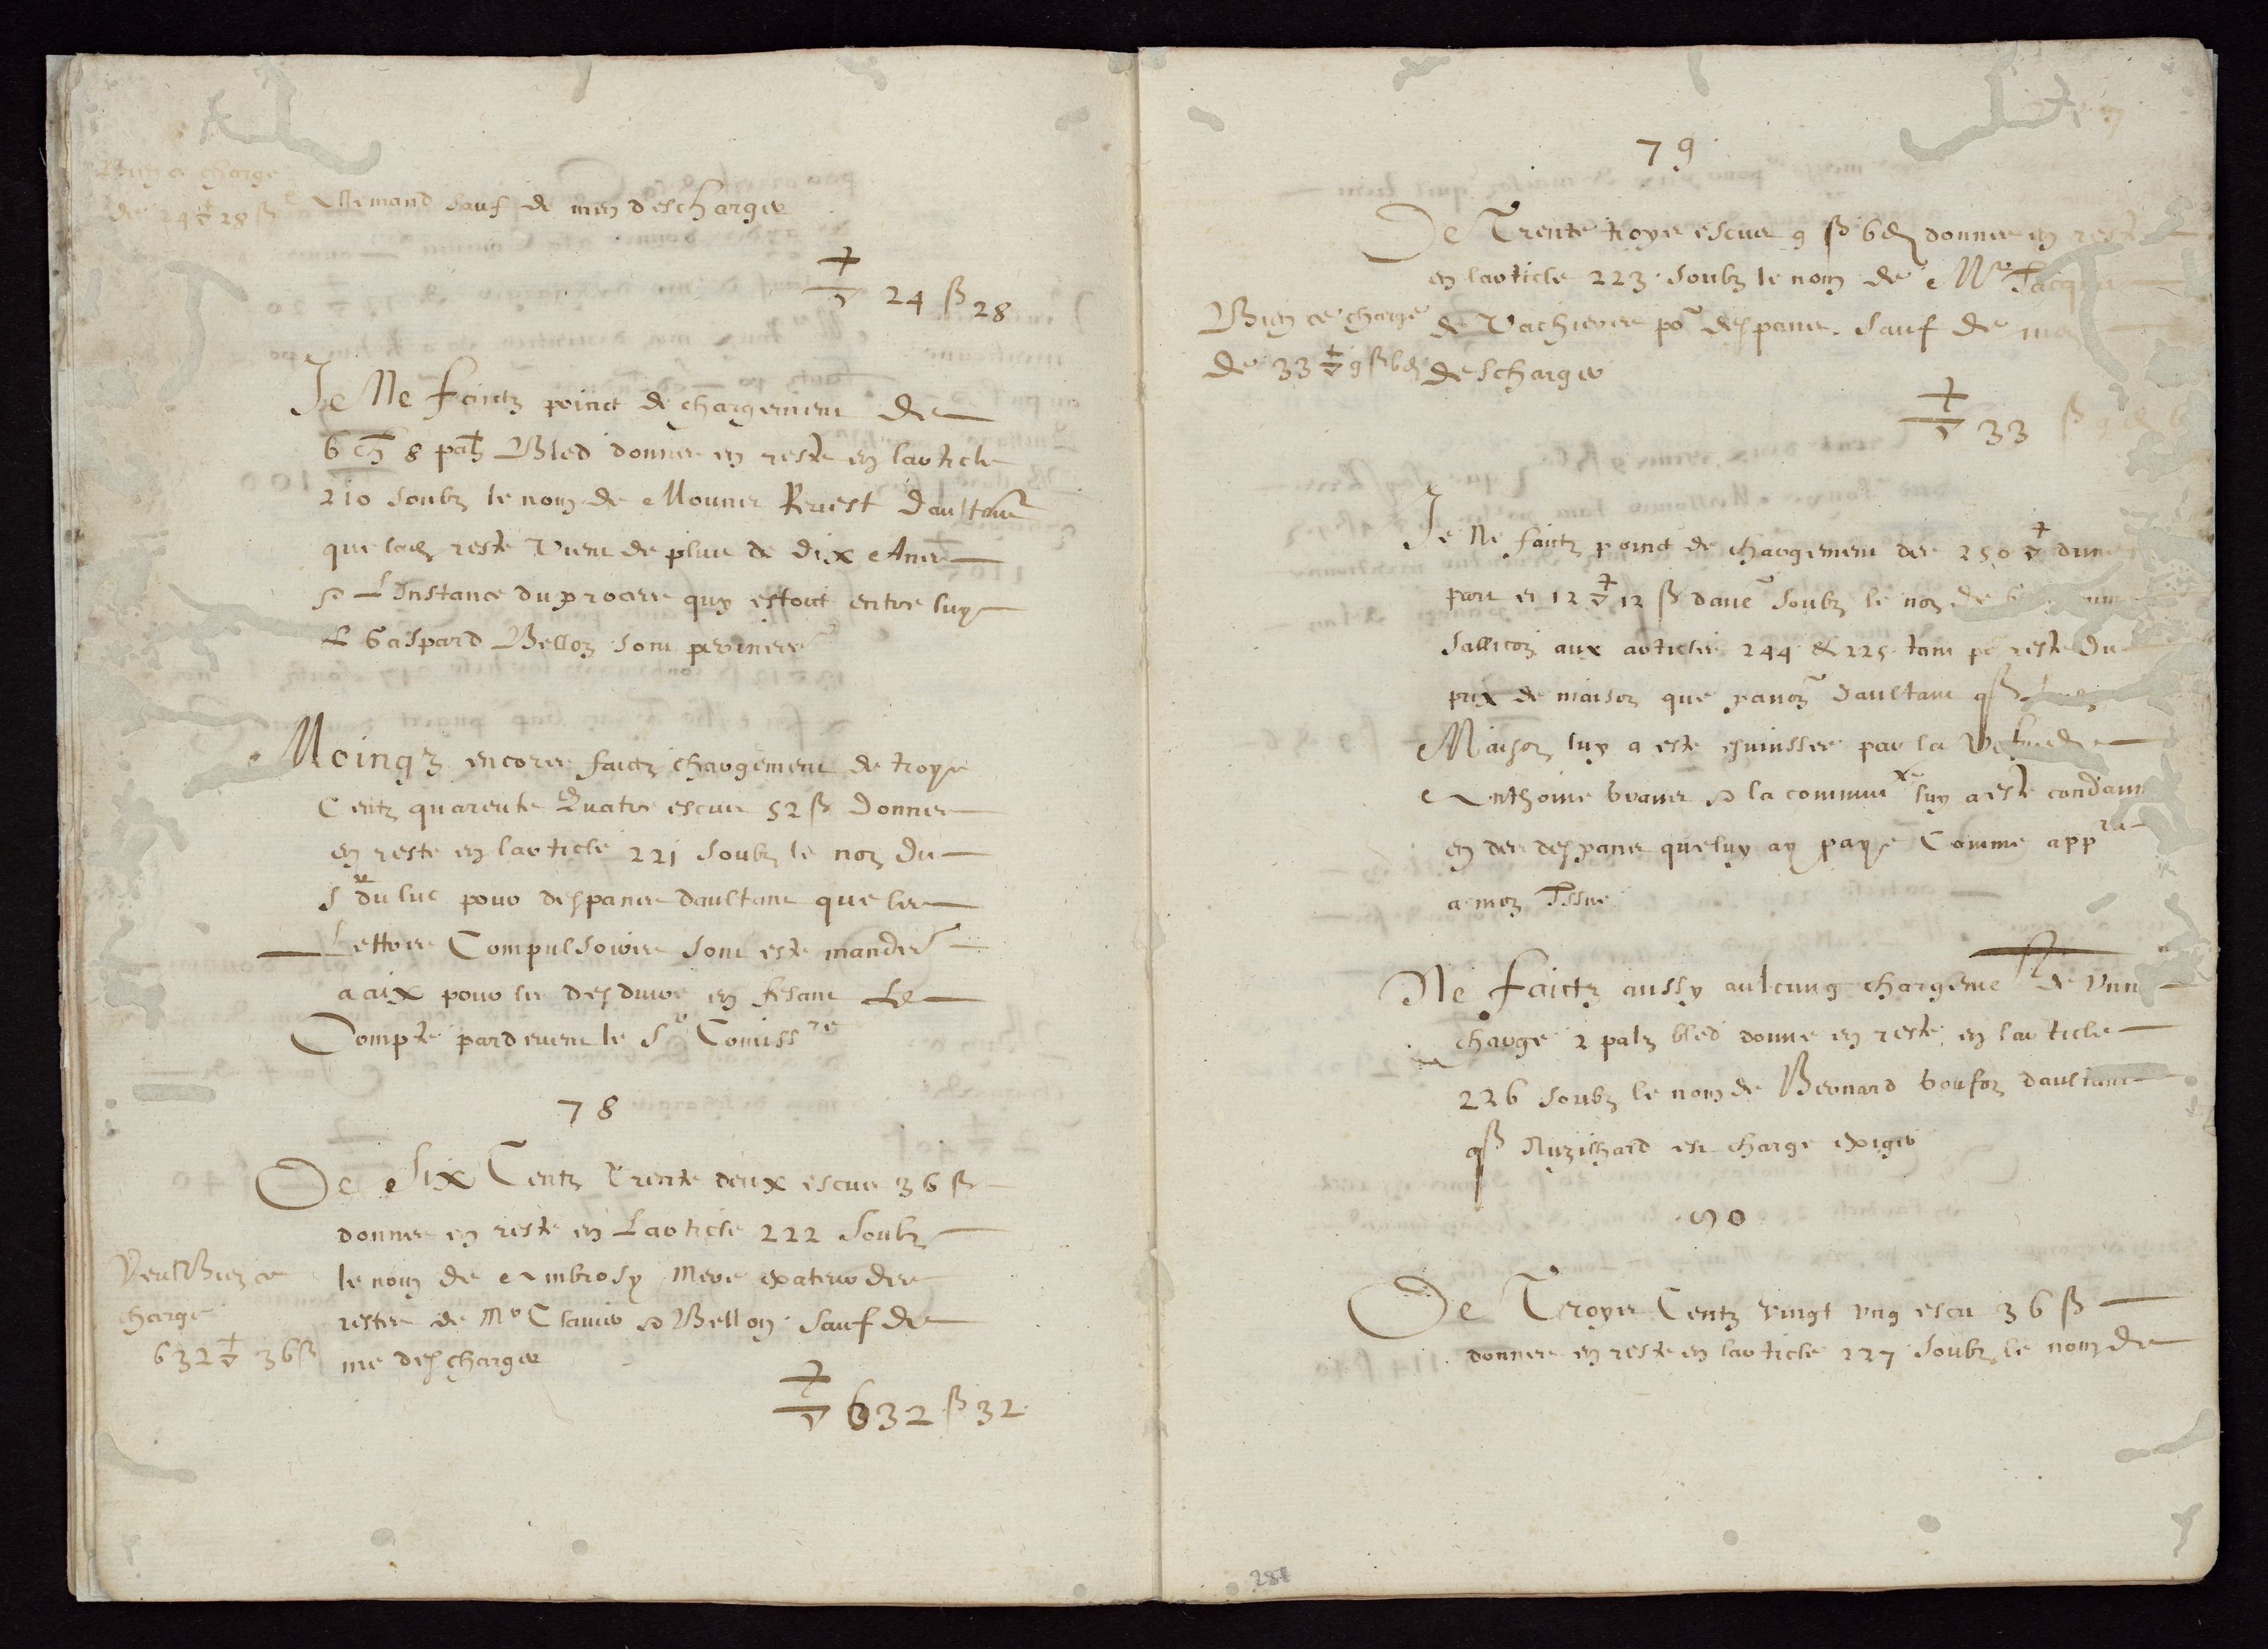 Bien ce charge
de 24 ▽ 28 ß
Allemand sauf de men descharger
▽ 24 ß 28
Je Ne faictz poinct de chargement de
6 ch 8 pah Bled donnes en reste en larticle
210 soubz le nom de Mounet Revest daultant
que lad reste vient de plus de dix Ans
& Linstance du proces quy estoit entre luy
& Gaspard Bellon sont
Moingz encores faictz chargement de troys
Centz quarente Quatre escus 52 ß donnes
en reste en larticle 221 soubz le nom du
sr du luc pour despances daultant que les
Lettres Compulsoires sont este mandes
a aix pour les desduire en fesant Le
Compte pardevent le Sr Comissre
78
De Six Centz Trente deux escus 36 ß
donnes en reste en Larticle 222 soubz
le nom de Ambrosy Mere exateur des
restes de Me Clavier & Bellon sauf de
me descharger
Veult Bien ce
charge
632 ▽ 36 ß
▽ 632 ß 32
79
De Trente troys escus 9 ß 6 d donnes en reste
en larticle 223 soubz le nom de Me Jacques
de Vachieres por despances sauf de me
descharger
Bien ce charge
de 33 ▽ 9 ß 6 d
▽ 33 ß 9 d 6
Je Ne faictz poinct de chargement des 250 ▽ dune
part et 12 ▽ 12 ß dauc soubz le nom de
Sallicon aux articles 244 & 225 tant por reste du
prix de maison que daultant qß
Maison luy a este esvinssee par la
Anthoine & la commute luy a este condam
en des despances que luy ay paye Comme appra
a mon Issue
Ne faictz aussy aulcung chargemet de une
charge 2 palz bled donne en reste en larticle
226 soubz le nom de Bernard daultant
qß est charge exiger
80
De Troys Centz vingt ung escu 36 ß
donnes en reste en larticle 227 soubz le nom de
281